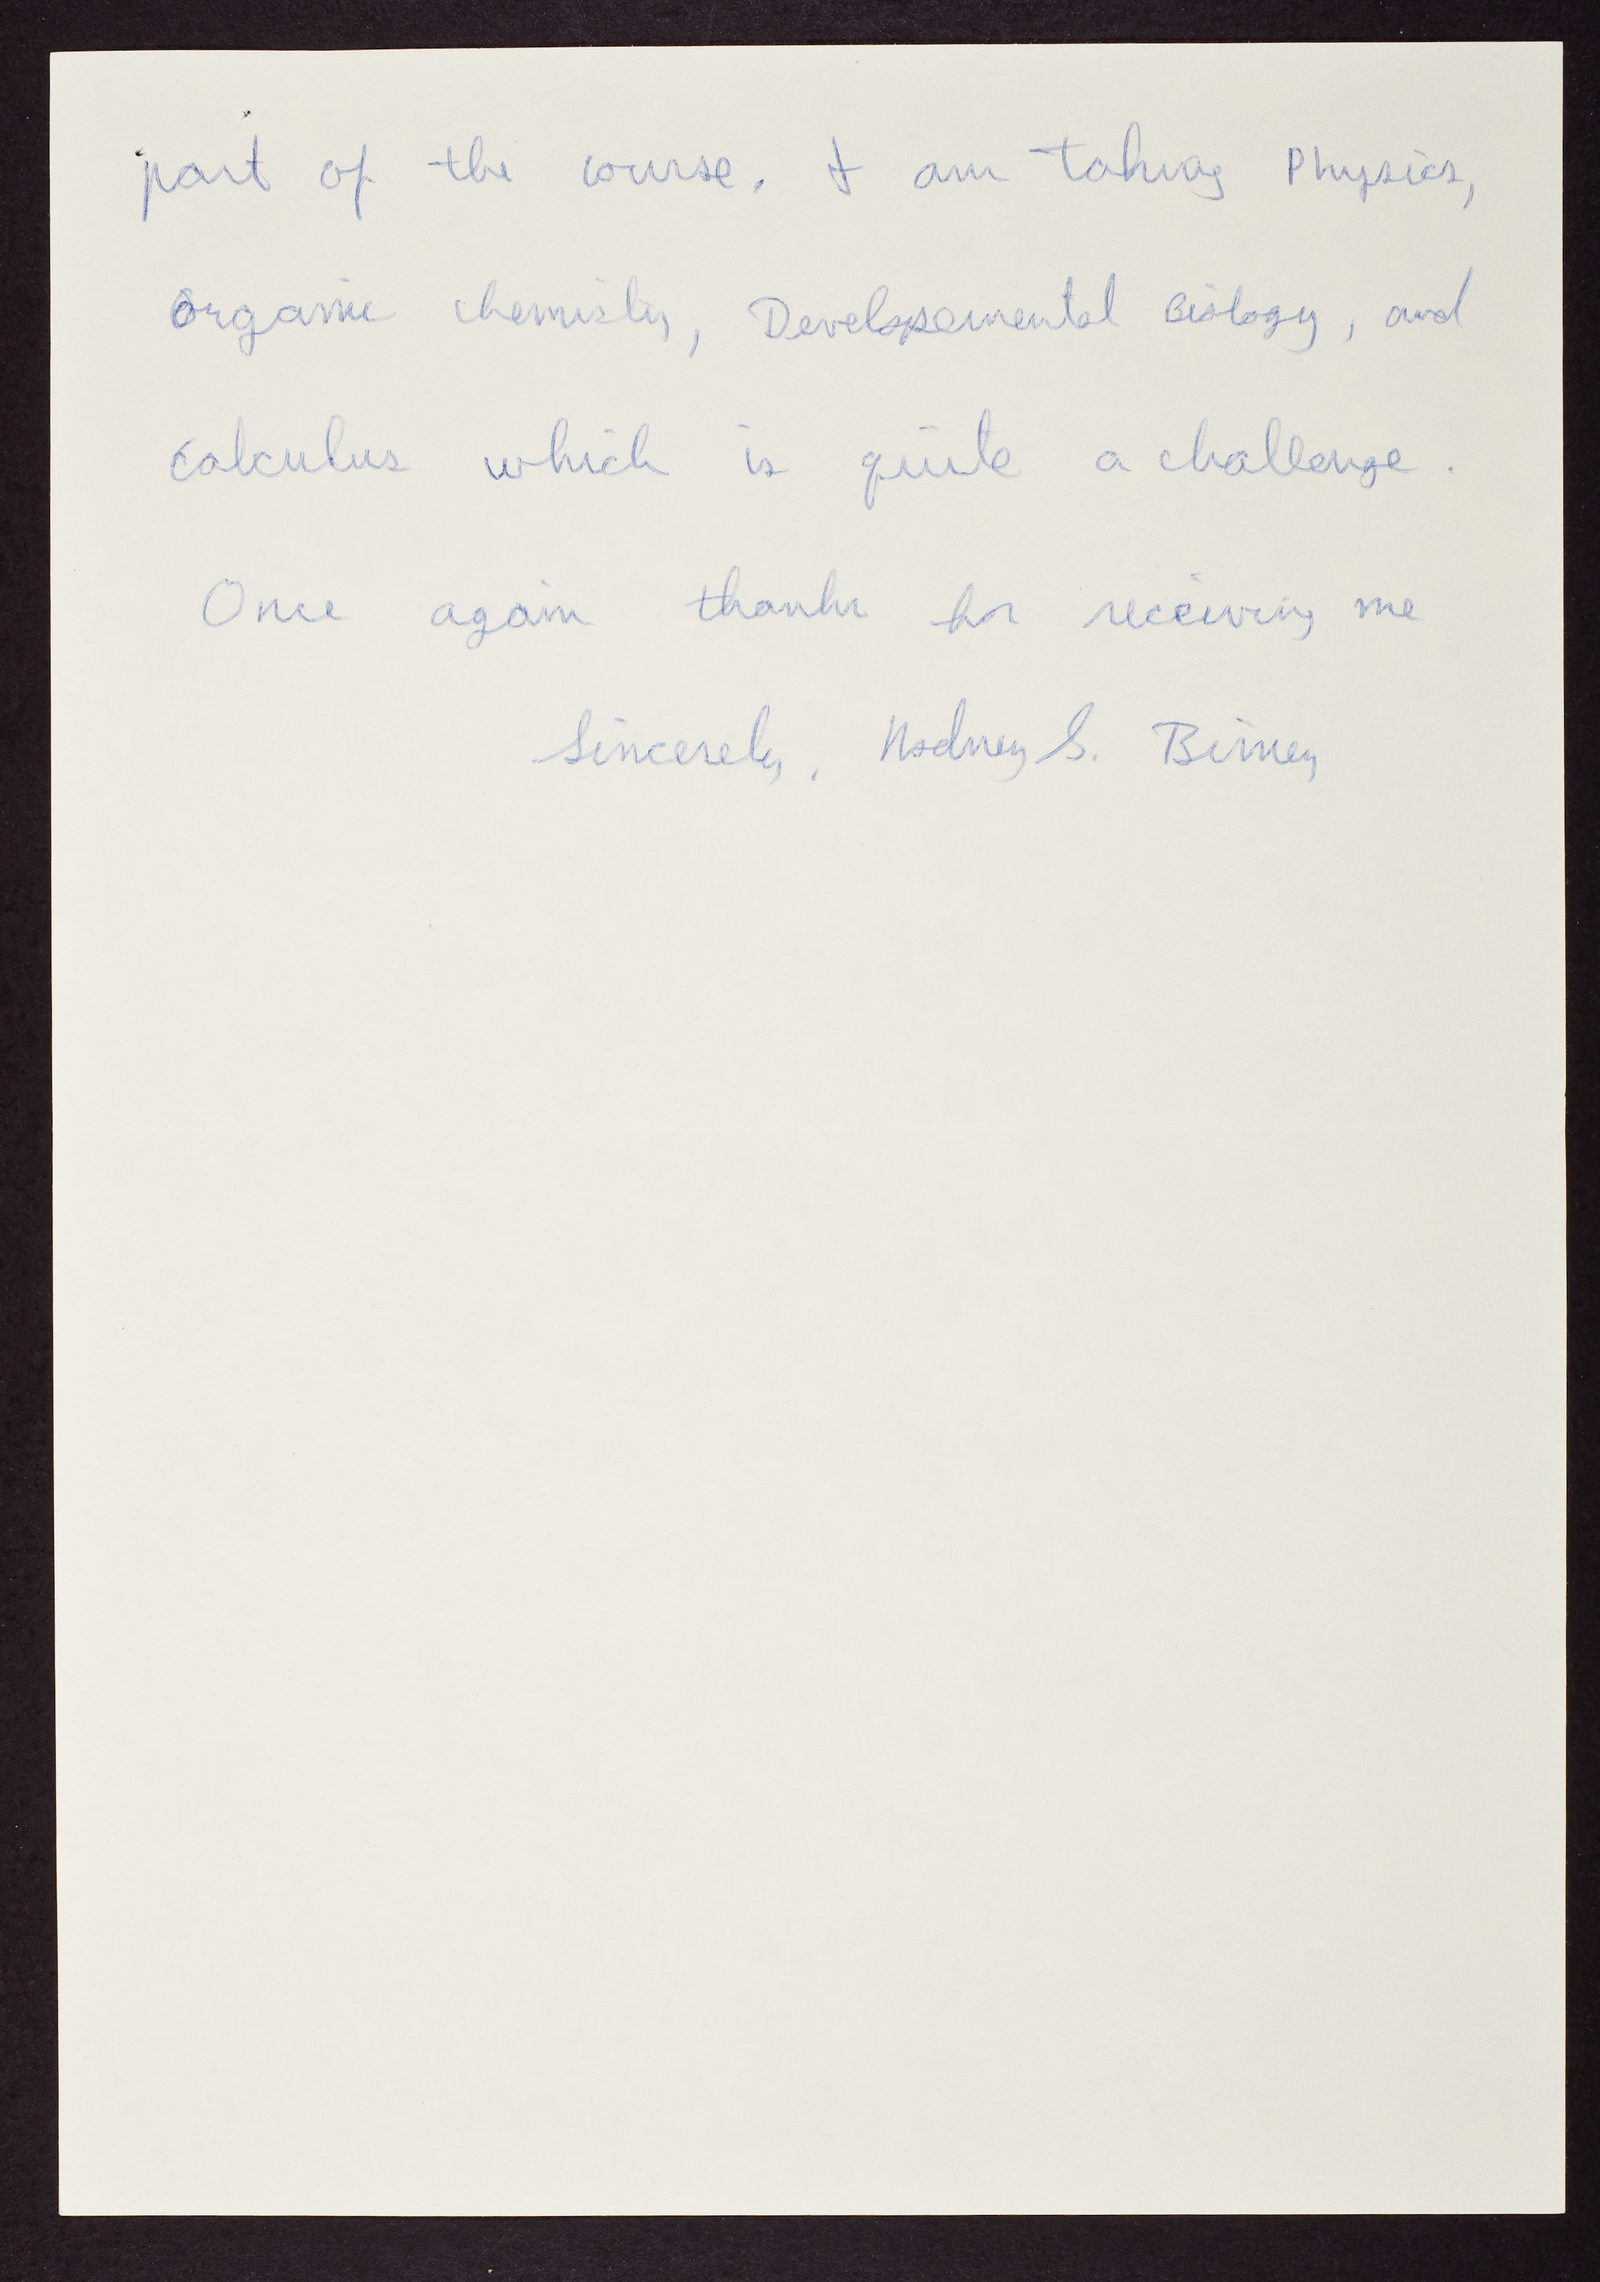 part of the course. I am taking Physics,
Organic chemistry, Developemental Biology, and
Calculus which is quite a challenge.
Once again thanks for receiving me
Sincerely, Rodney S. Birney